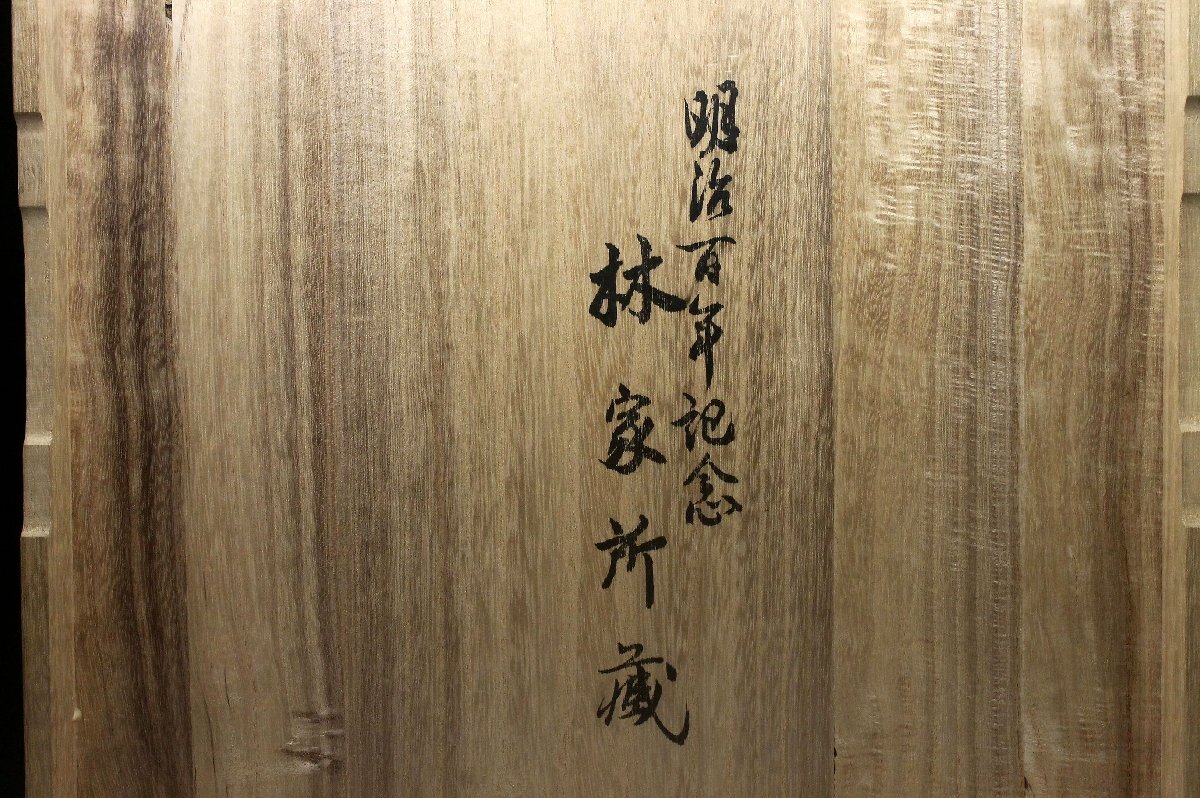 明治百年記念
林家所蔵